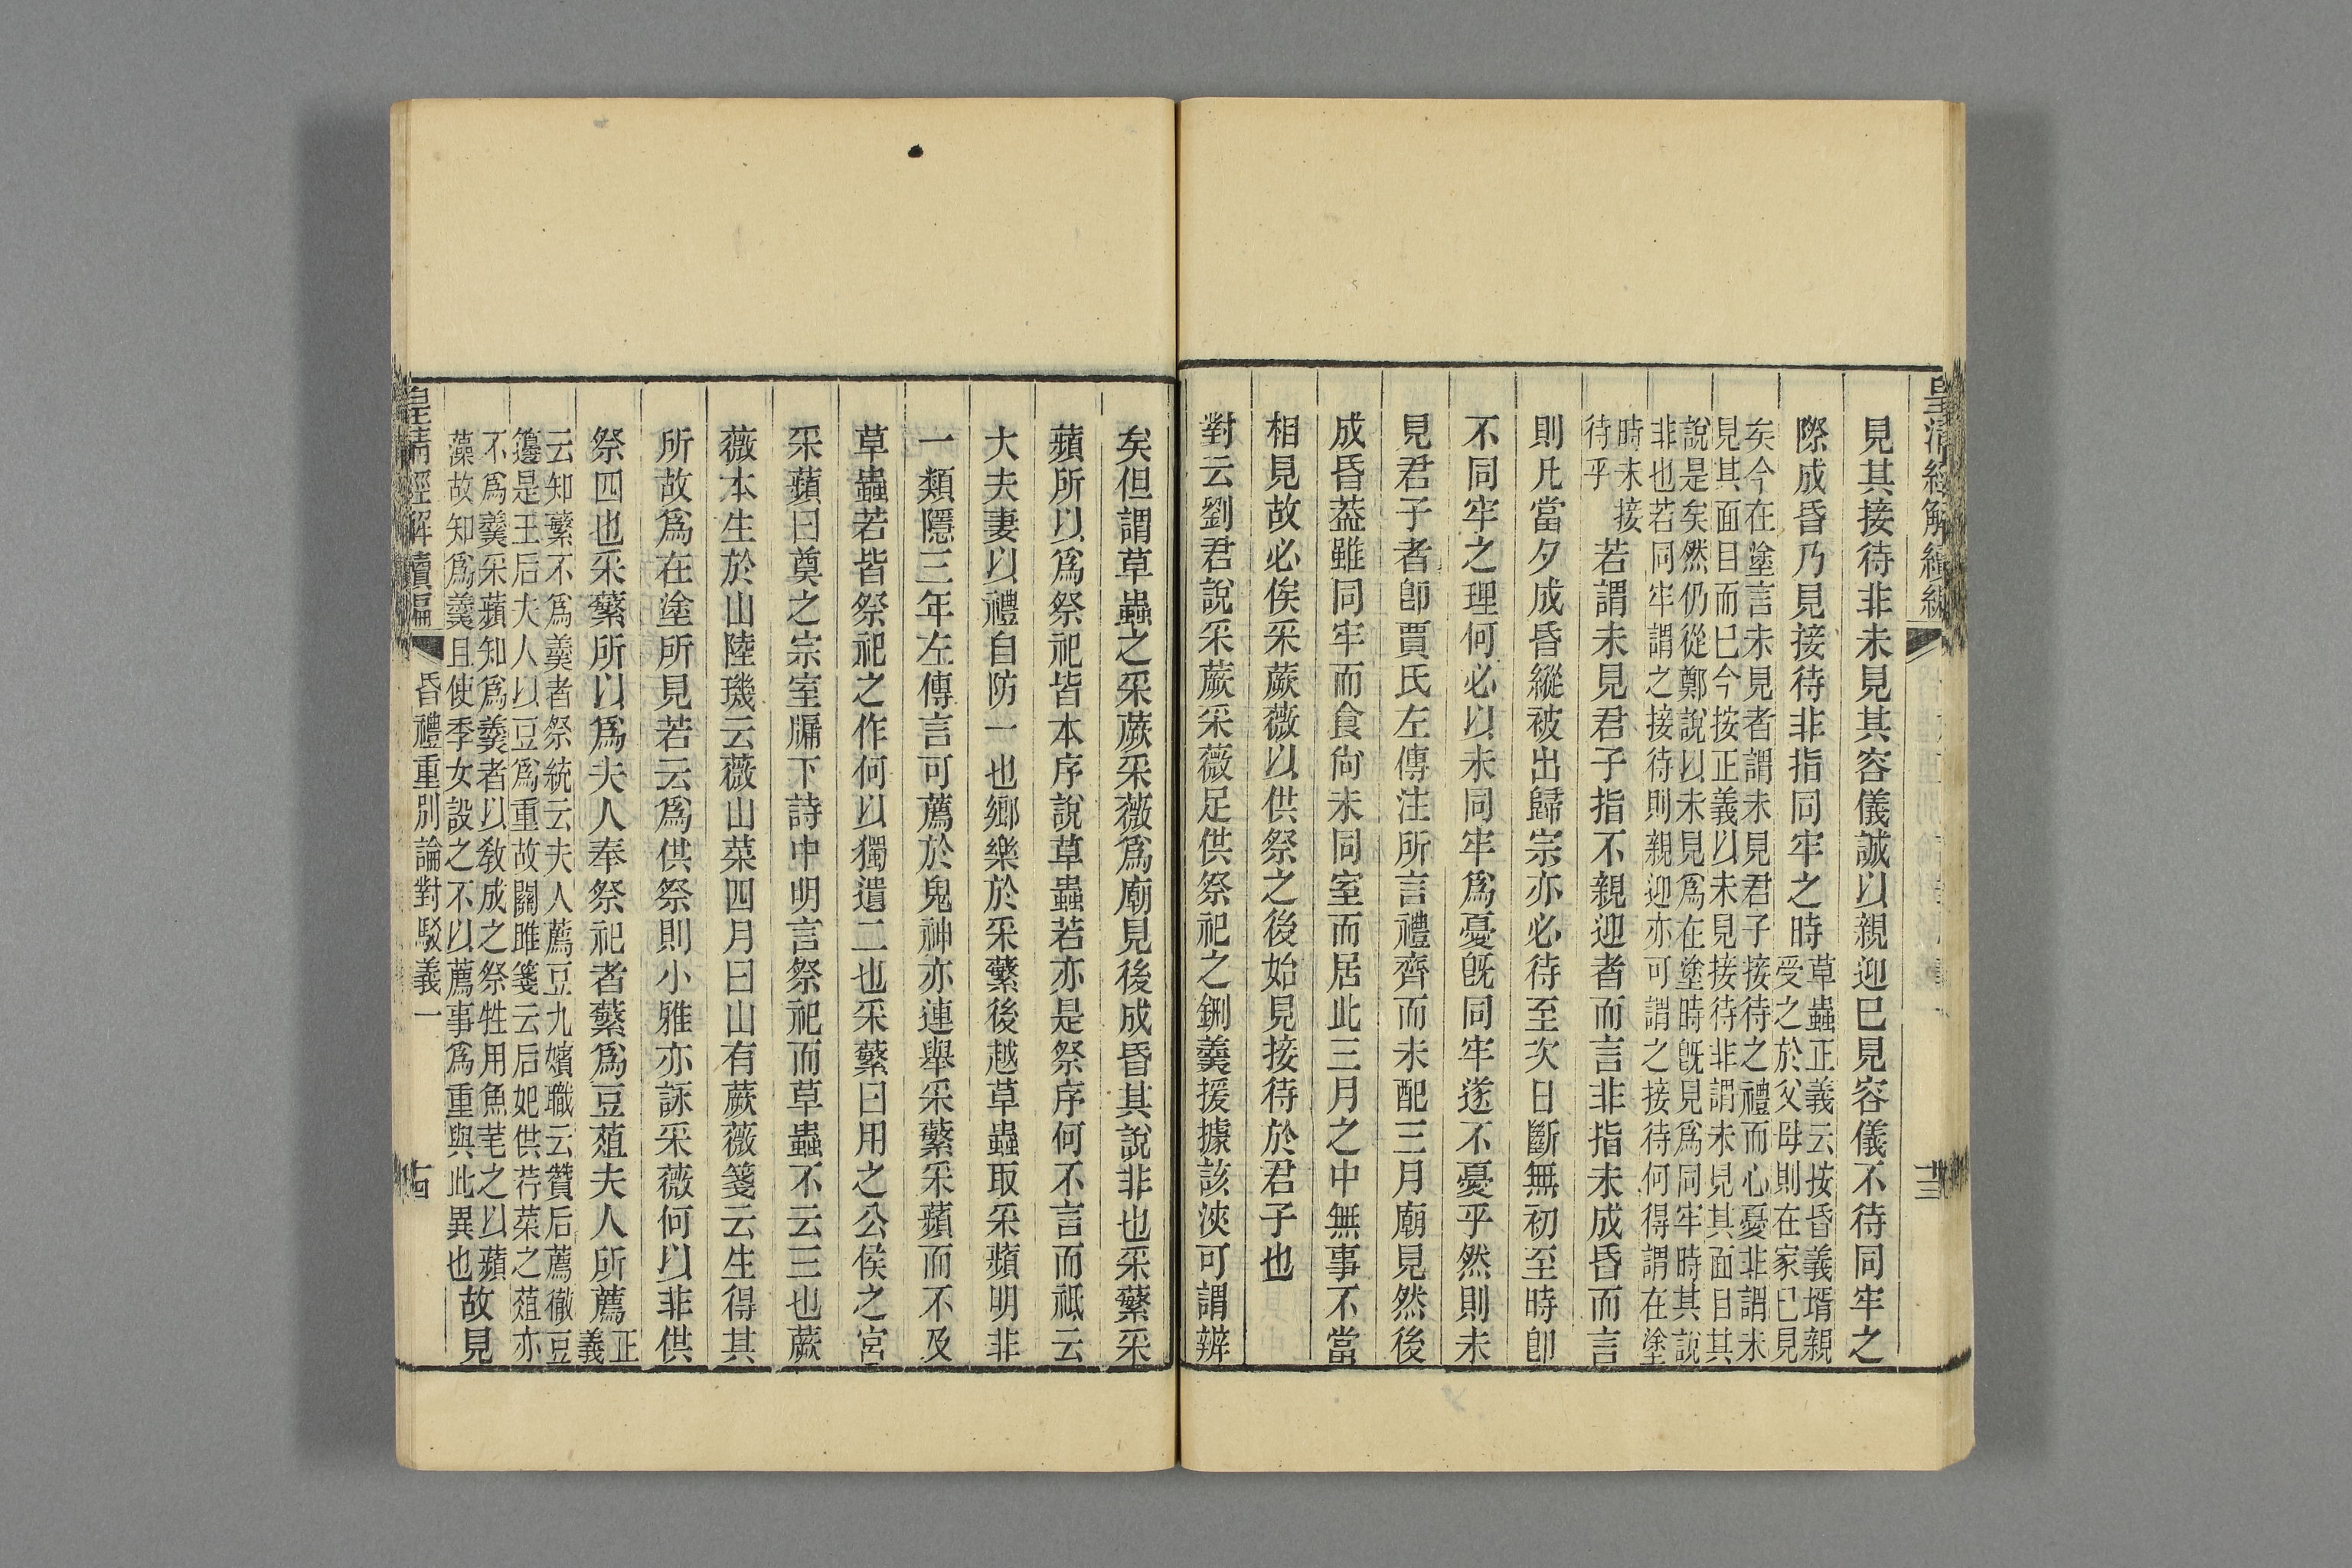 皇清經解續編
十三
見其接待非未見其容儀誠以親迎巳見容儀不待同牢之
際成昏乃見接待非指同牢之時草蟲正義云按昏義壻親受之於父母則在家巳見
矣今在塗言未見者謂未見君子接待之禮而心憂非謂未見其面目而巳今按正義以未見接待非謂未見其面目其
說是矣然仍從鄭說以未見爲在塗時旣見爲同牢時其說非也若同牢謂之接待則親迎亦可謂之接待何得謂在塗
時未接待乎若謂未見君子指不親迎者而言非指未成昏而言
則凡當夕成昏縱被出歸宗亦必待至次日斷無初至時卽
不同牢之理何必以未同牢爲憂旣同牢遂不憂乎然則未
見君子者卽賈氏左傳注所言禮齊而未配三月廟見然後
成昏葢雖同牢而食尙未同室而居此三月之中無事不當
相見故必俟采蕨薇以供祭之後始見接待於君子也
對云劉君說采蕨采薇足供祭祀之鉶羹援據該浹可謂辨
矣但謂草蟲之采蕨采薇爲廟見後成昏其說非也采蘩采
蘋所以爲祭祀皆本序說草蟲若亦是祭序何不言而祗云
大夫妻以禮自防一也鄉樂於采蘩後越草蟲取采蘋明非
一類隱三年左傳言可薦於鬼神亦連舉采蘩采蘋而不及
草蟲若皆祭祀之作何以獨遺二也采蘩曰用之公侯之宮
采蘋曰奠之宗室牖下詩中明言祭祀而草蟲不云三也蕨
薇本生於山陸璣云薇山菜四月曰山有蕨薇箋云生得其
所故爲在塗所見若云爲供祭則小雅亦詠采薇何以非供
祭四也采蘩所以爲夫人奉祭祀者蘩爲豆葅夫人所薦正義
云知蘩不爲羹者祭統云夫人薦豆九嬪職云贊后薦徹豆籩是王后夫人以豆爲重故關雎箋云后妃供荇菜之葅亦
不爲羹采蘋知爲羹者以敎成之祭牲用魚芼之以蘋藻故知爲羹且使季女設之不以薦事爲重與此異也故見
皇淸經解續編
昏禮重別論對駁義一
十四